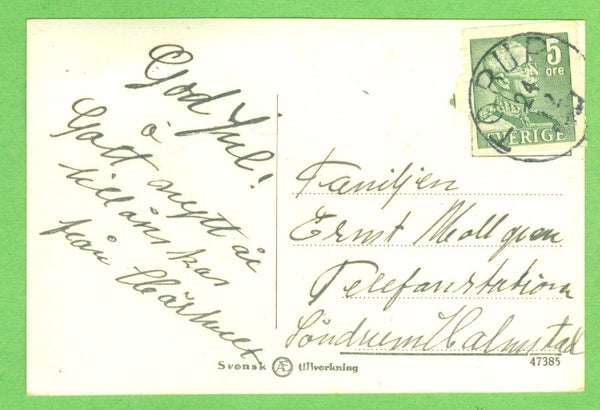 God Jul!
o
Gott nytt år
tillönskas
från Skärkull
Familjen
Ernst Mollgren
Telefonstation
Söndrum Halmstad
5
öre
SVERIGE
KORUP
24
Svensk Æ Tillverkning
47385